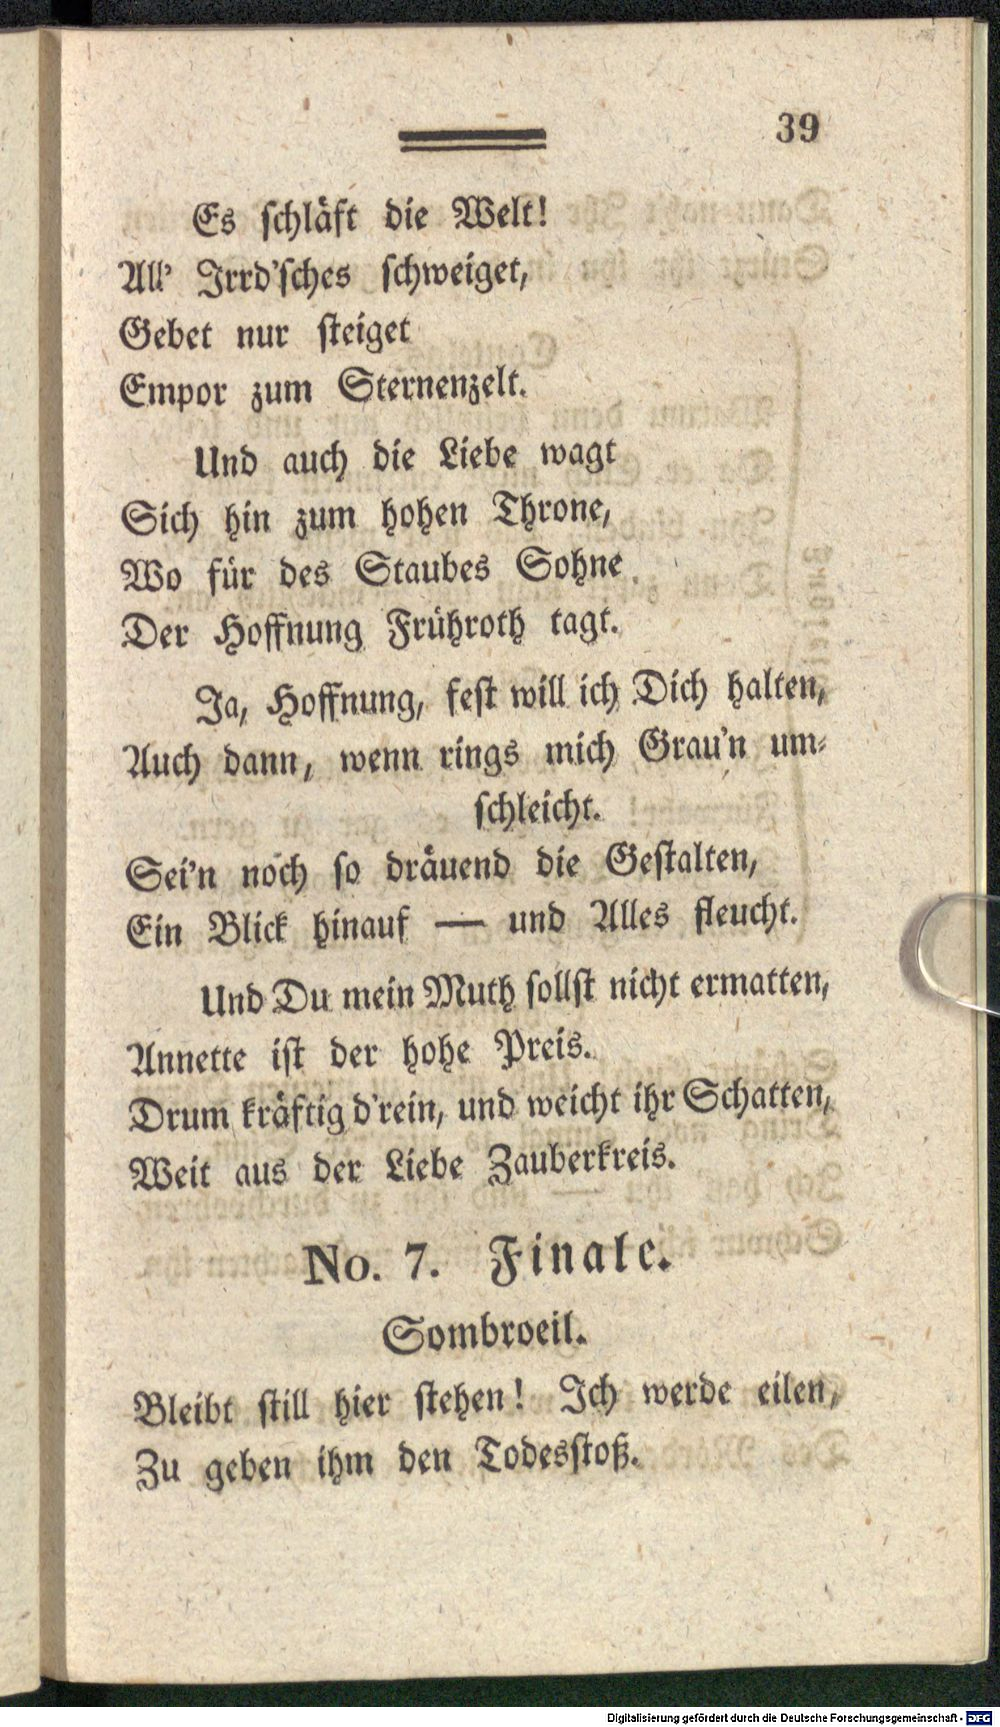 39
Es schläft die Welt!
All' Irrd'sches schweiget,
Gebet nur steiget
Empor zum Sternenzelt.
Und auch die Liebe wagt
Sich hin zum hohen Throne,
Wo für des Staubes Sohne
Der Hoffnung Frühroth tagt.
Ja, Hoffnung, fest will ich Dich halten,
Auch dann, wenn rings mich Grau'n um-
schleicht.
Sei'n noch so dräuend die Gestalten,
Ein Blick hinauf — und Alles fleucht.
Und Du mein Muth sollst nicht ermatten,
Annette ist der hohe Preis.
Drum kräftig d'rein, und weicht ihr Schatten,
Weit aus der Liebe Zauberkreis.
No. 7. Finale.
Sombroeil.
Bleibt still hier stehen! Ich werde eilen,
Zu geben ihm den Todesstoß.
Digitalisierung gefördert durch die Deutsche Forschungsgemeinschaft - DFG